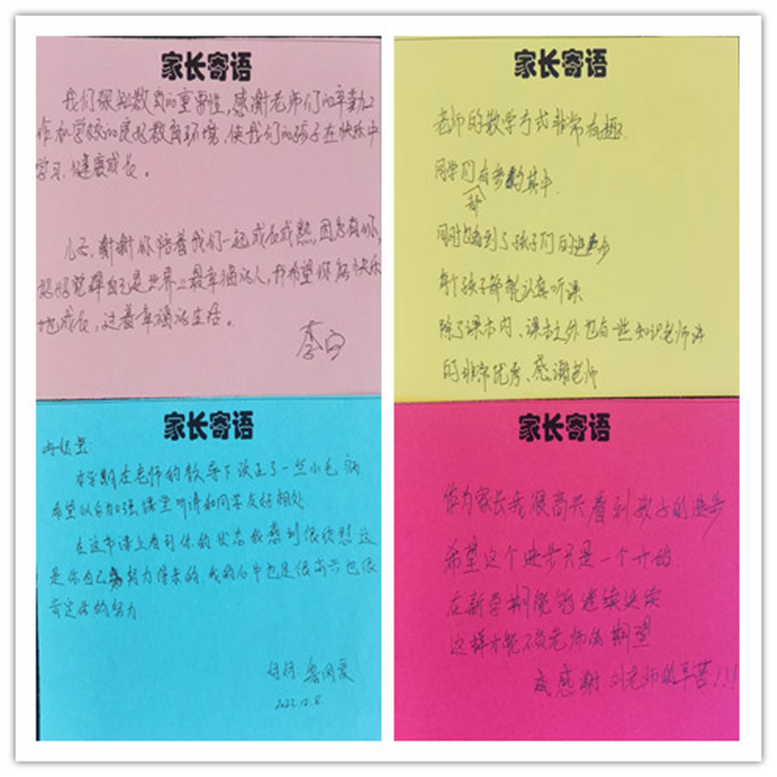 家长寄语
我们深知教育的重要性，感谢老师们的辛勤工
作和学校的良好教育环境，使我们的孩子在快乐中
学习，健康成长。
儿子，谢谢你陪着我们一起成长成熟，因为有你，
妈妈觉得自己是世界上最幸福的人，我希望你能快乐
地成长，过着幸福的生活。
家长寄语
老师的教学方式非常有趣
同学们都有参与其中
同时也看到了孩子们的进步
每个孩子都能认真听课
除了课本内、课本之外也有一些知识老师讲
的非常优秀、感谢老师
家长寄语
本学期在老师的教导下改正了一些小毛病
希望以后加强课堂听讲和同学友好相处
在这节课上看到你的状态我感到很欣慰 这
是你自己努力得来的 我的心中也是很高兴也很
肯定你的努力
妈妈:
2023.12.8
家长寄语
作为家长我很高兴看到孩子的进步
希望这个进步只是一个开始
在新学期能够继续延续
这样才能不负老师的期望
感谢刘老师的辛苦!!!